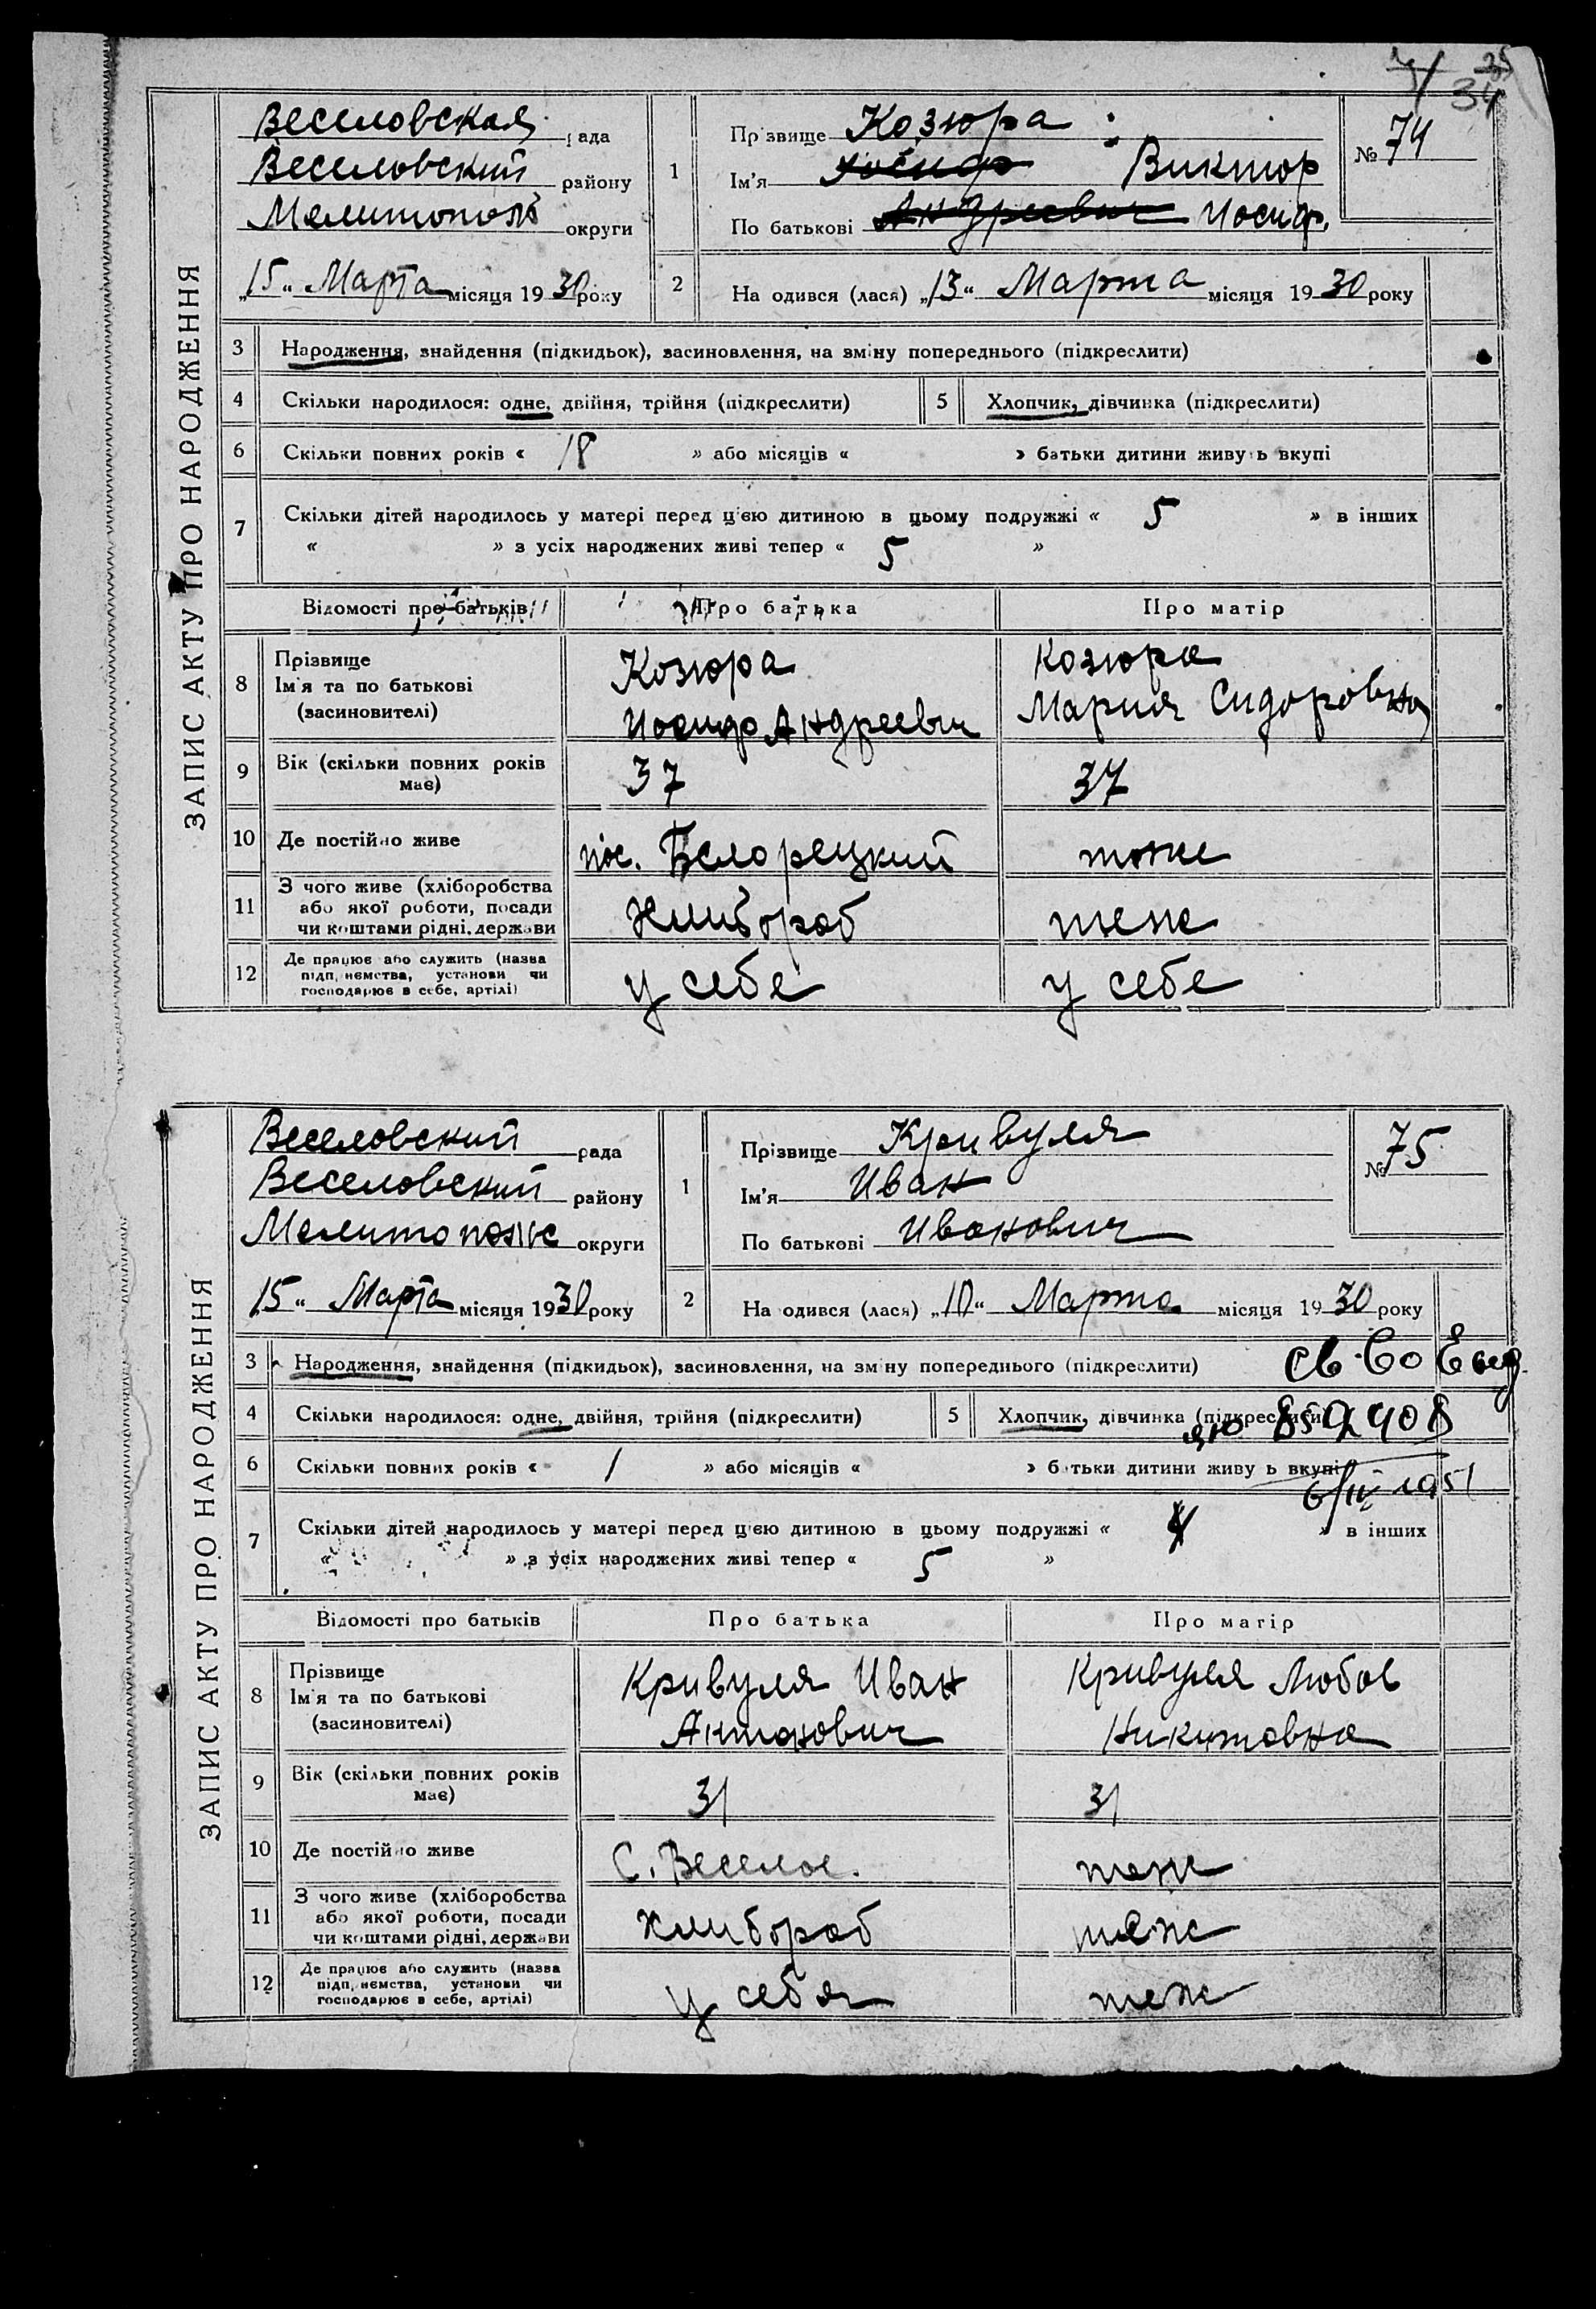 34
ЗАПИС АКТУ ПРО НАРОДЖЕННЯ
Веселовская рада
Веселовский району
Мелитополь округи
"15" Марта місяця 1930 року
1
Прізвище Козюра
Ім'я Иосиф Виктор
По батькові Андреевич Иосиф.
№ 74
2 На одився (лася) "13" Марта місяця 1930 року
3 Народження, знайдення (підкидьок), засиновлення, на зміну попереднього (підкреслити)
4 Скільки народилося: одне, двійня, трійня (підкреслити) 5 Хлопчик, дівчинка (підкреслити)
6 Скільки повних років « 18 » або місяців « » батьки дитини живуть вкупі
7 Скільки дітей народилось у матері перед ц'єю дитиною в цьому подружжі « 5 » в інших
« » з усіх народжених живі тепер « 5 »
Відомості про батьків Про батька Про матір
8 Прізвище
Ім'я та по батькові
(засиновителі)
Козюра
Иосиф Андреевич
Козюра
Мария Сидоровна
9 Вік (скільки повних років
має)
37 37
10 Де постійно живе пос. Белорецкий тоже
11 З чого живе (хліборобства
або якої роботи, посади
чи коштами рідні, держави
Хлибороб теже
12 Де працює або служить (назва
підприємства, установи чи
господарює в себе, артілі)
у себе у себе
ЗАПИС АКТУ ПРО НАРОДЖЕННЯ
Веселовский рада
Веселовский району
Мелитопольс округи
15" Марта місяця 1930 року
1
Прізвище Кривуля
Ім'я Иван
По батькові Иванович
№ 75
2 На одився (лася) "10" Марта місяця 1930 року
3 Народження, знайдення (підкидьок), засиновлення, на зміну попереднього (підкреслити)
Св-во
4 Скільки народилося: одне, двійня, трійня (підкреслити) 5 Хлопчик, дівчинка (підкреслити)
6 Скільки повних років « 1 » або місяців « » батьки дитини живу ь вкупі
6/IV 1951
7 Скільки дітей народилось у матері перед ц'єю дитиною в цьому подружжі « 4 » в інших
« » з усіх народжених живі тепер « 5 »
Відомості про батьків Про батька Про матір
8 Прізвище
Ім'я та по батькові
(засиновителі)
Кривуля Иван
Антонович
Кривуля Любов
Никитовна
9 Вік (скільки повних років
має)
31 31
10 Де постійно живе С. Веселое. теже
11 З чого живе (хліборобства
або якої роботи, посади
чи коштами рідні, держави
Хлибороб теже
12 Де працює або служить (назва
підприємства, установи чи
господарює в себе, артілі)
у себя теже